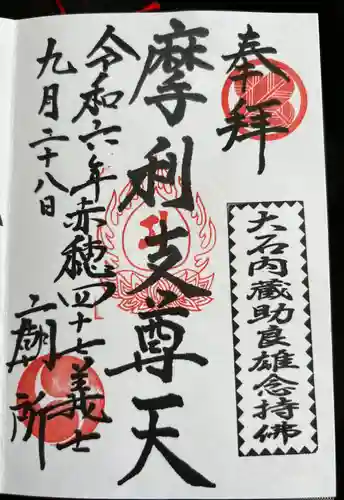 奉拝
大石内蔵助良雄念持佛
摩利支尊天
令和六年赤穂四十七義士
九月二十八日